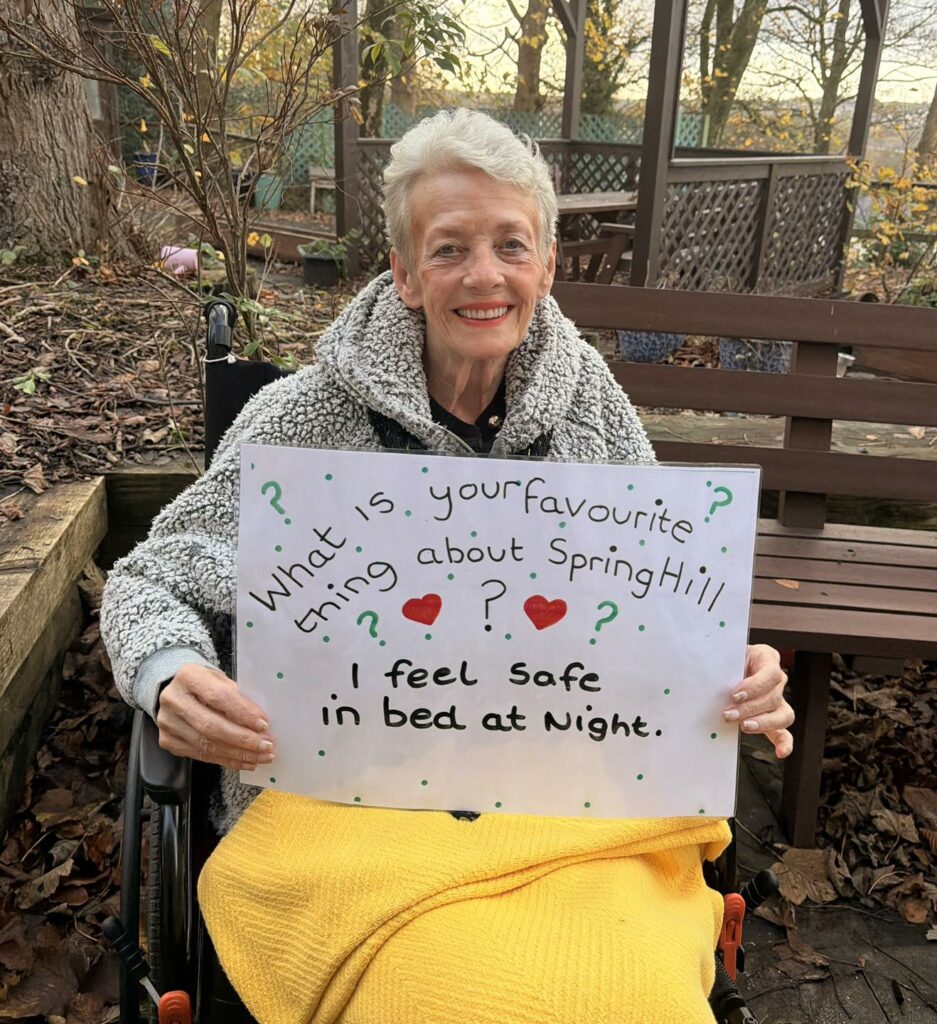 ? What is your favourite ?
thing about Spring Hill
? ? ?
I feel safe
in bed at Night.